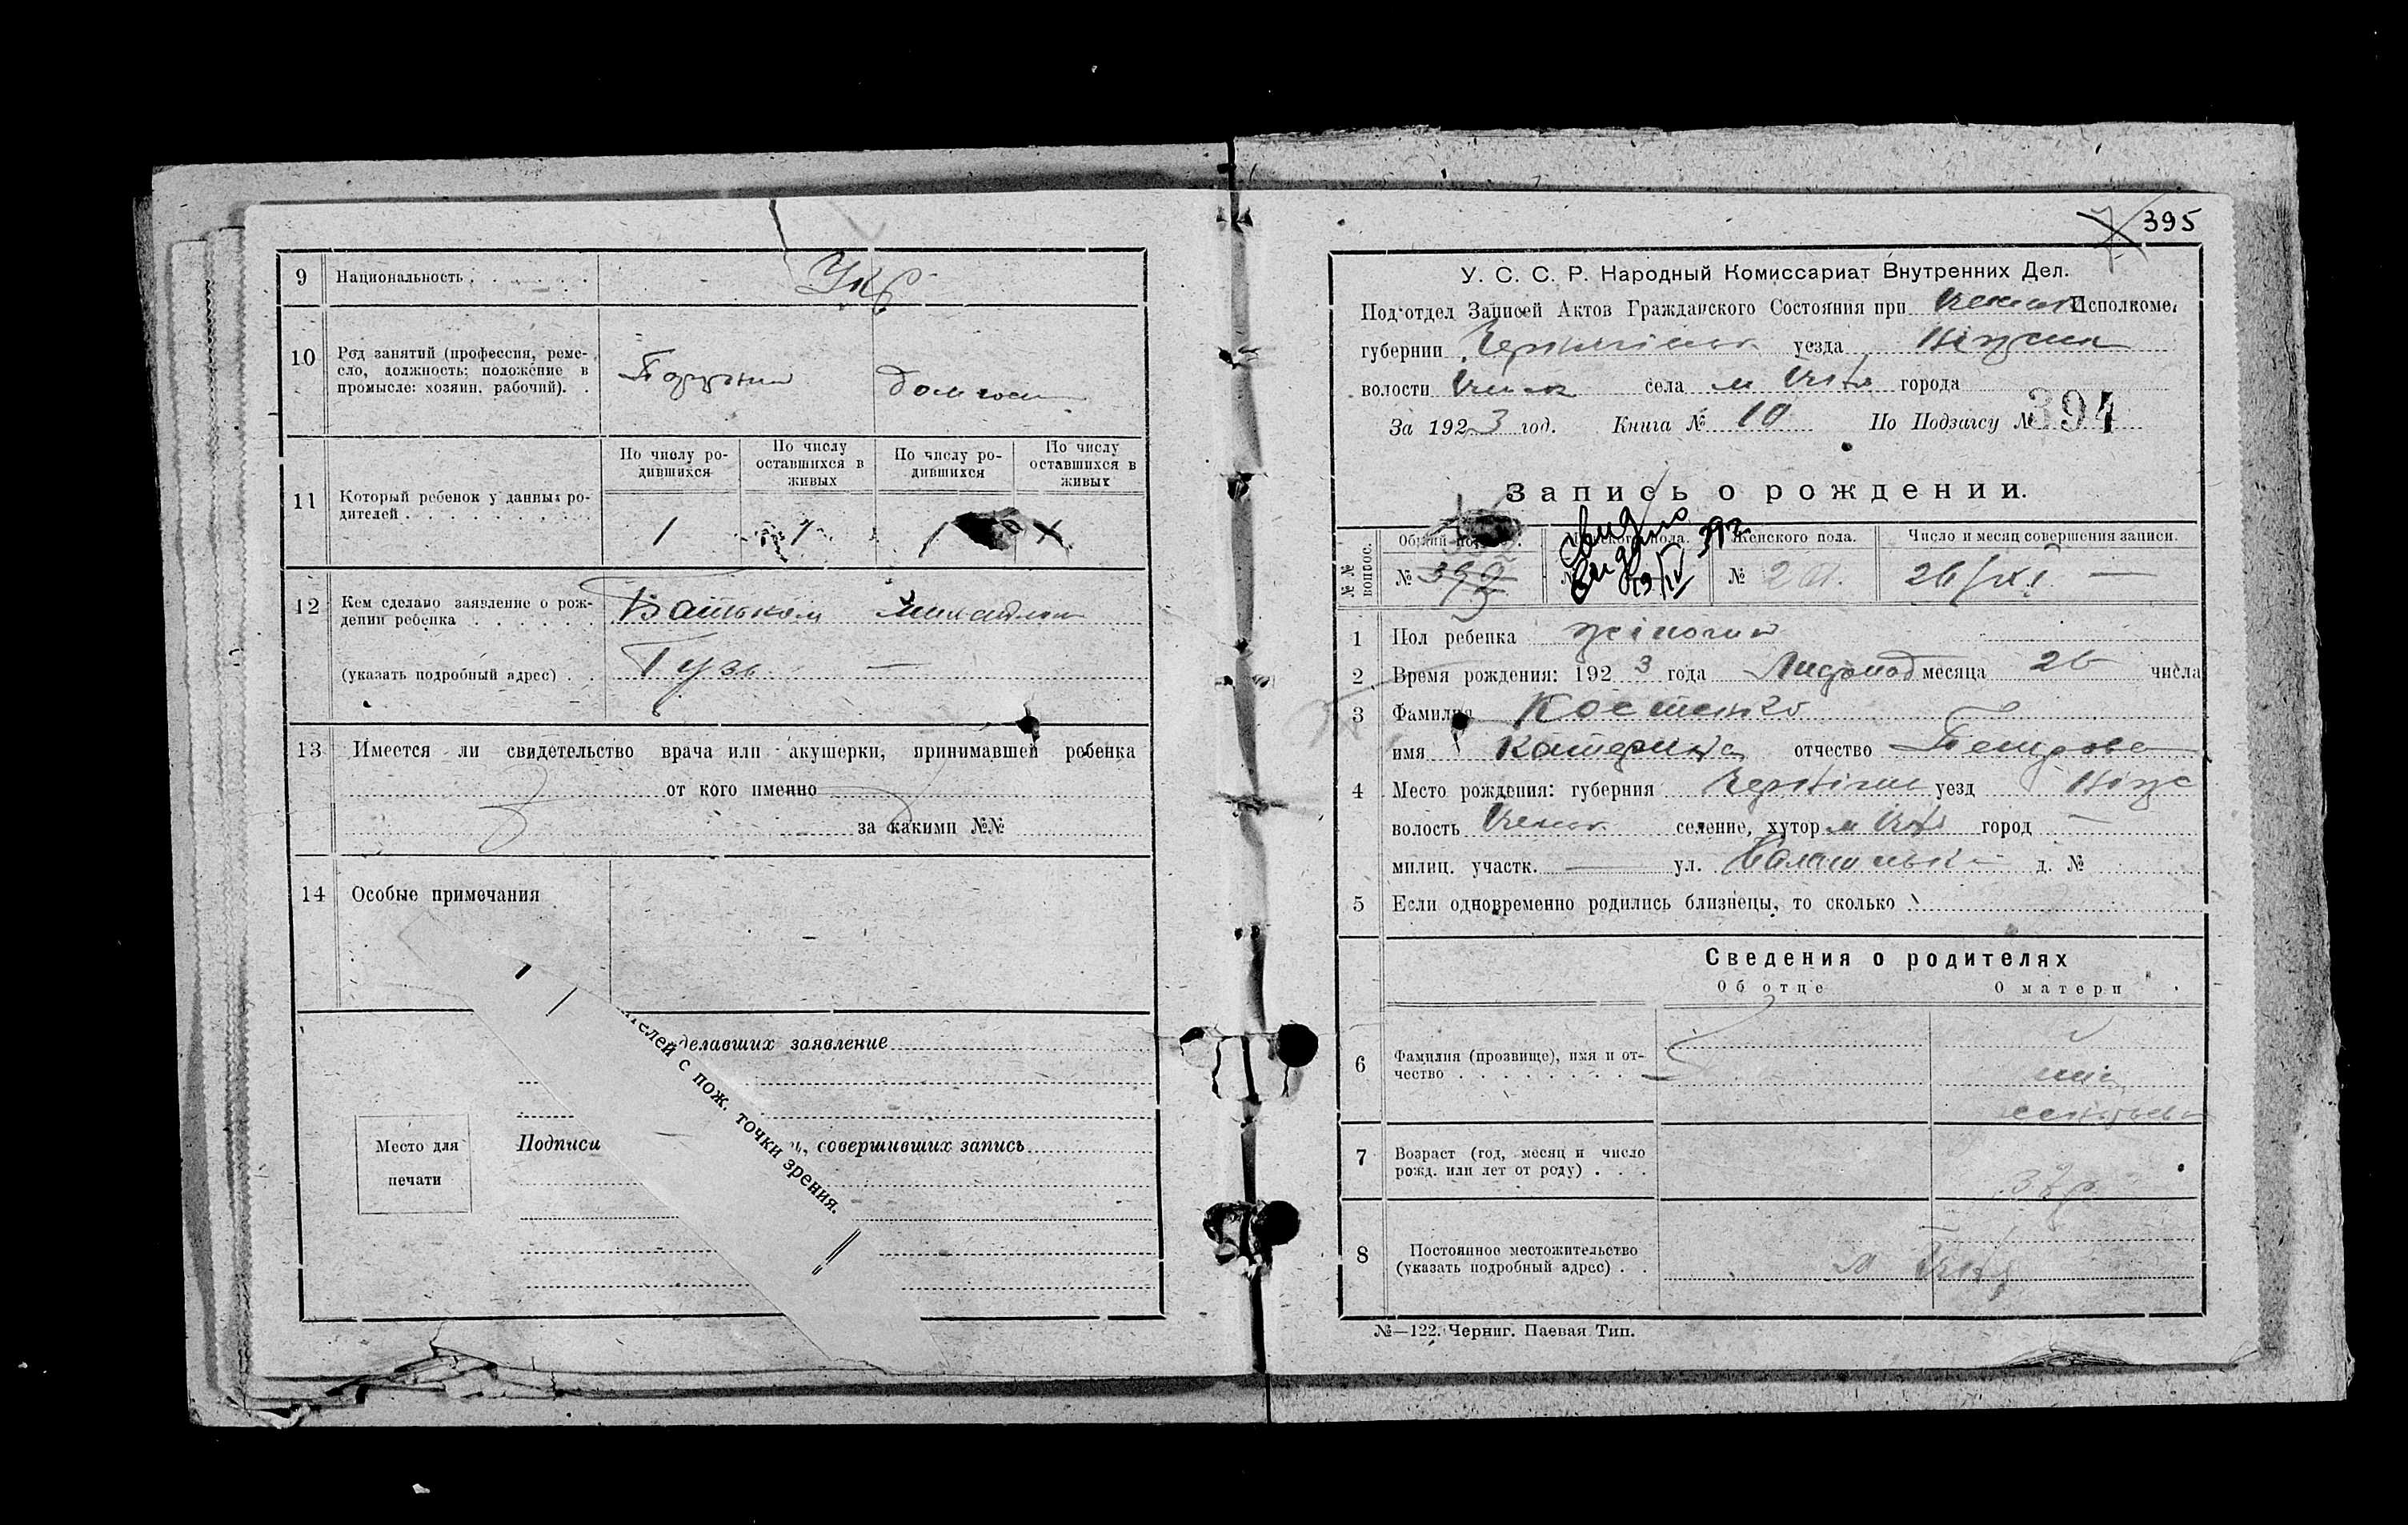 9 Национальность . . . . . . Укр
10 Род занятий (профессия, реме-
сло, должность; положение в
промысле: хозяин, рабочий). .
домгосп
11 Который ребенок у данных ро-
дителей
По числу ро-
дившихся
По числу
оставшихся в
живых
По числу ро-
дившихся
По числу
оставшихся в
живых
1 1 1 X
12 Кем сделано заявление о рож-
дении ребенка . . . . . . Батьком Михайлом
(указать подробный адрес) . . Гузь —
13 Имеется ли свидетельство врача или акушерки, принимавшей ребенка
от кого именно
за какими №№
14 Особые примечания
—
телей с пож. точки зрения.
делавших заявление
Место для
печати
Подписи
, совершивших запись
395
У. С. С. Р. Народный Комиссариат Внутренних Дел.
Под'отдел Записей Актов Гражданского Состояния при Ичнян Исполкоме.
губернии Чернигівськ уезда Ніжин
волости Ичнян села м Ичня города
За 1923 год. Книга № 10 По Подзагсу № 394
Запись о рождении.
№ № вопрос.
Общий
пола.
Женского пола.
Число и месяц совершения записи.
№ 392
Свид
видано
19/IV 39 г.
№ 201.
26/XI —
1 Пол ребенка жіночий
2 Время рождения: 1923 года Листопад месяца 26 числа
3 Фамилия Костенко
имя Катерина отчество Петрова
4 Место рождения: губерния Чернігів уезд Ніж
волость Ичнян селение, хутор м Ичня город —
милиц. участк. — ул. д. №
5 Если одновременно родились близнецы, то сколько
Сведения о родителях
Об отце
О матери
6 Фамилия (прозвище), имя и от-
чество
7 Возраст (год, месяц и число
рожд. или лет от роду) . . .
8 Постоянное местожительство
(указать подробный адрес) . .
м Ичня
№—122. Черниг. Паевая Тип.